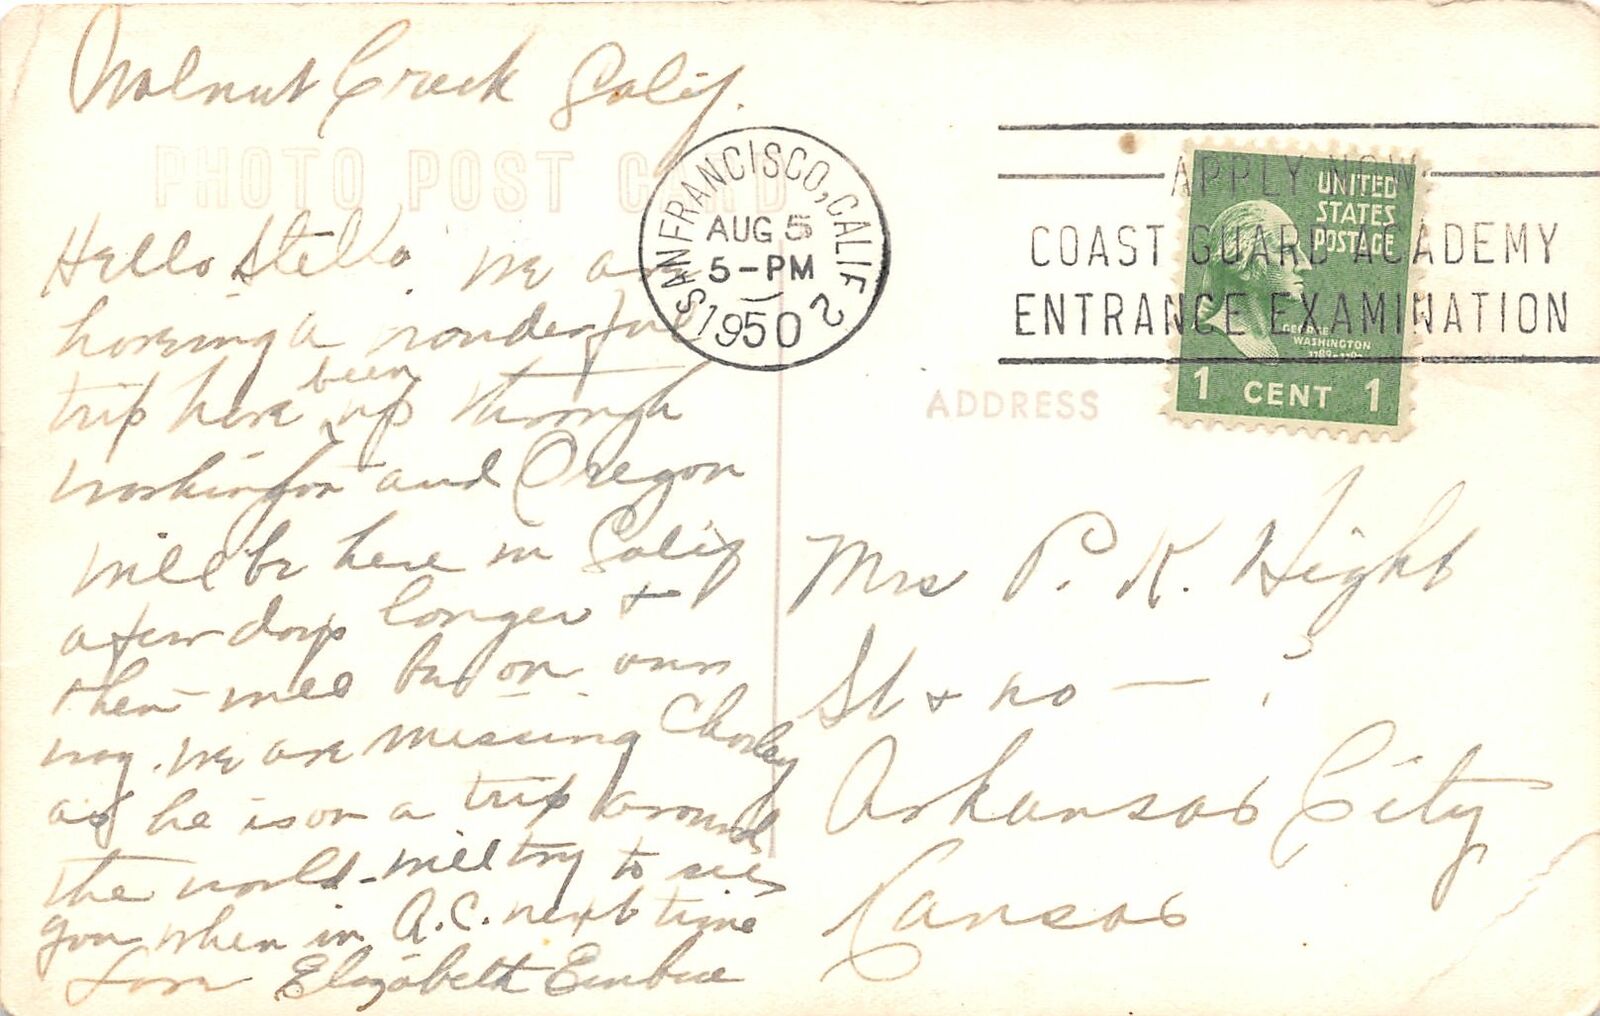 Walnut Creek Calif.
PHOTO POST CARD
Hello Stella we are
having a wonderful
trip here been up through
Washington and Oregon
will be here in Calif
a few days longer +
then will be on our
way. we are missing Charley
as he is on a trip around
the world - will try to see
you when in A.C. next time
Love Elizabeth
SAN FRANCISCO, CALIF 2
AUG 5
5-PM
1950
APPLY NOW
COAST GUARD ACADEMY
ENTRANCE EXAMINATION
UNITED
STATES
POSTAGE
GEORGE
WASHINGTON
1789-
1 CENT 1
ADDRESS
Mrs P. K. Hight
St + no —
Arkansas City
Kansas